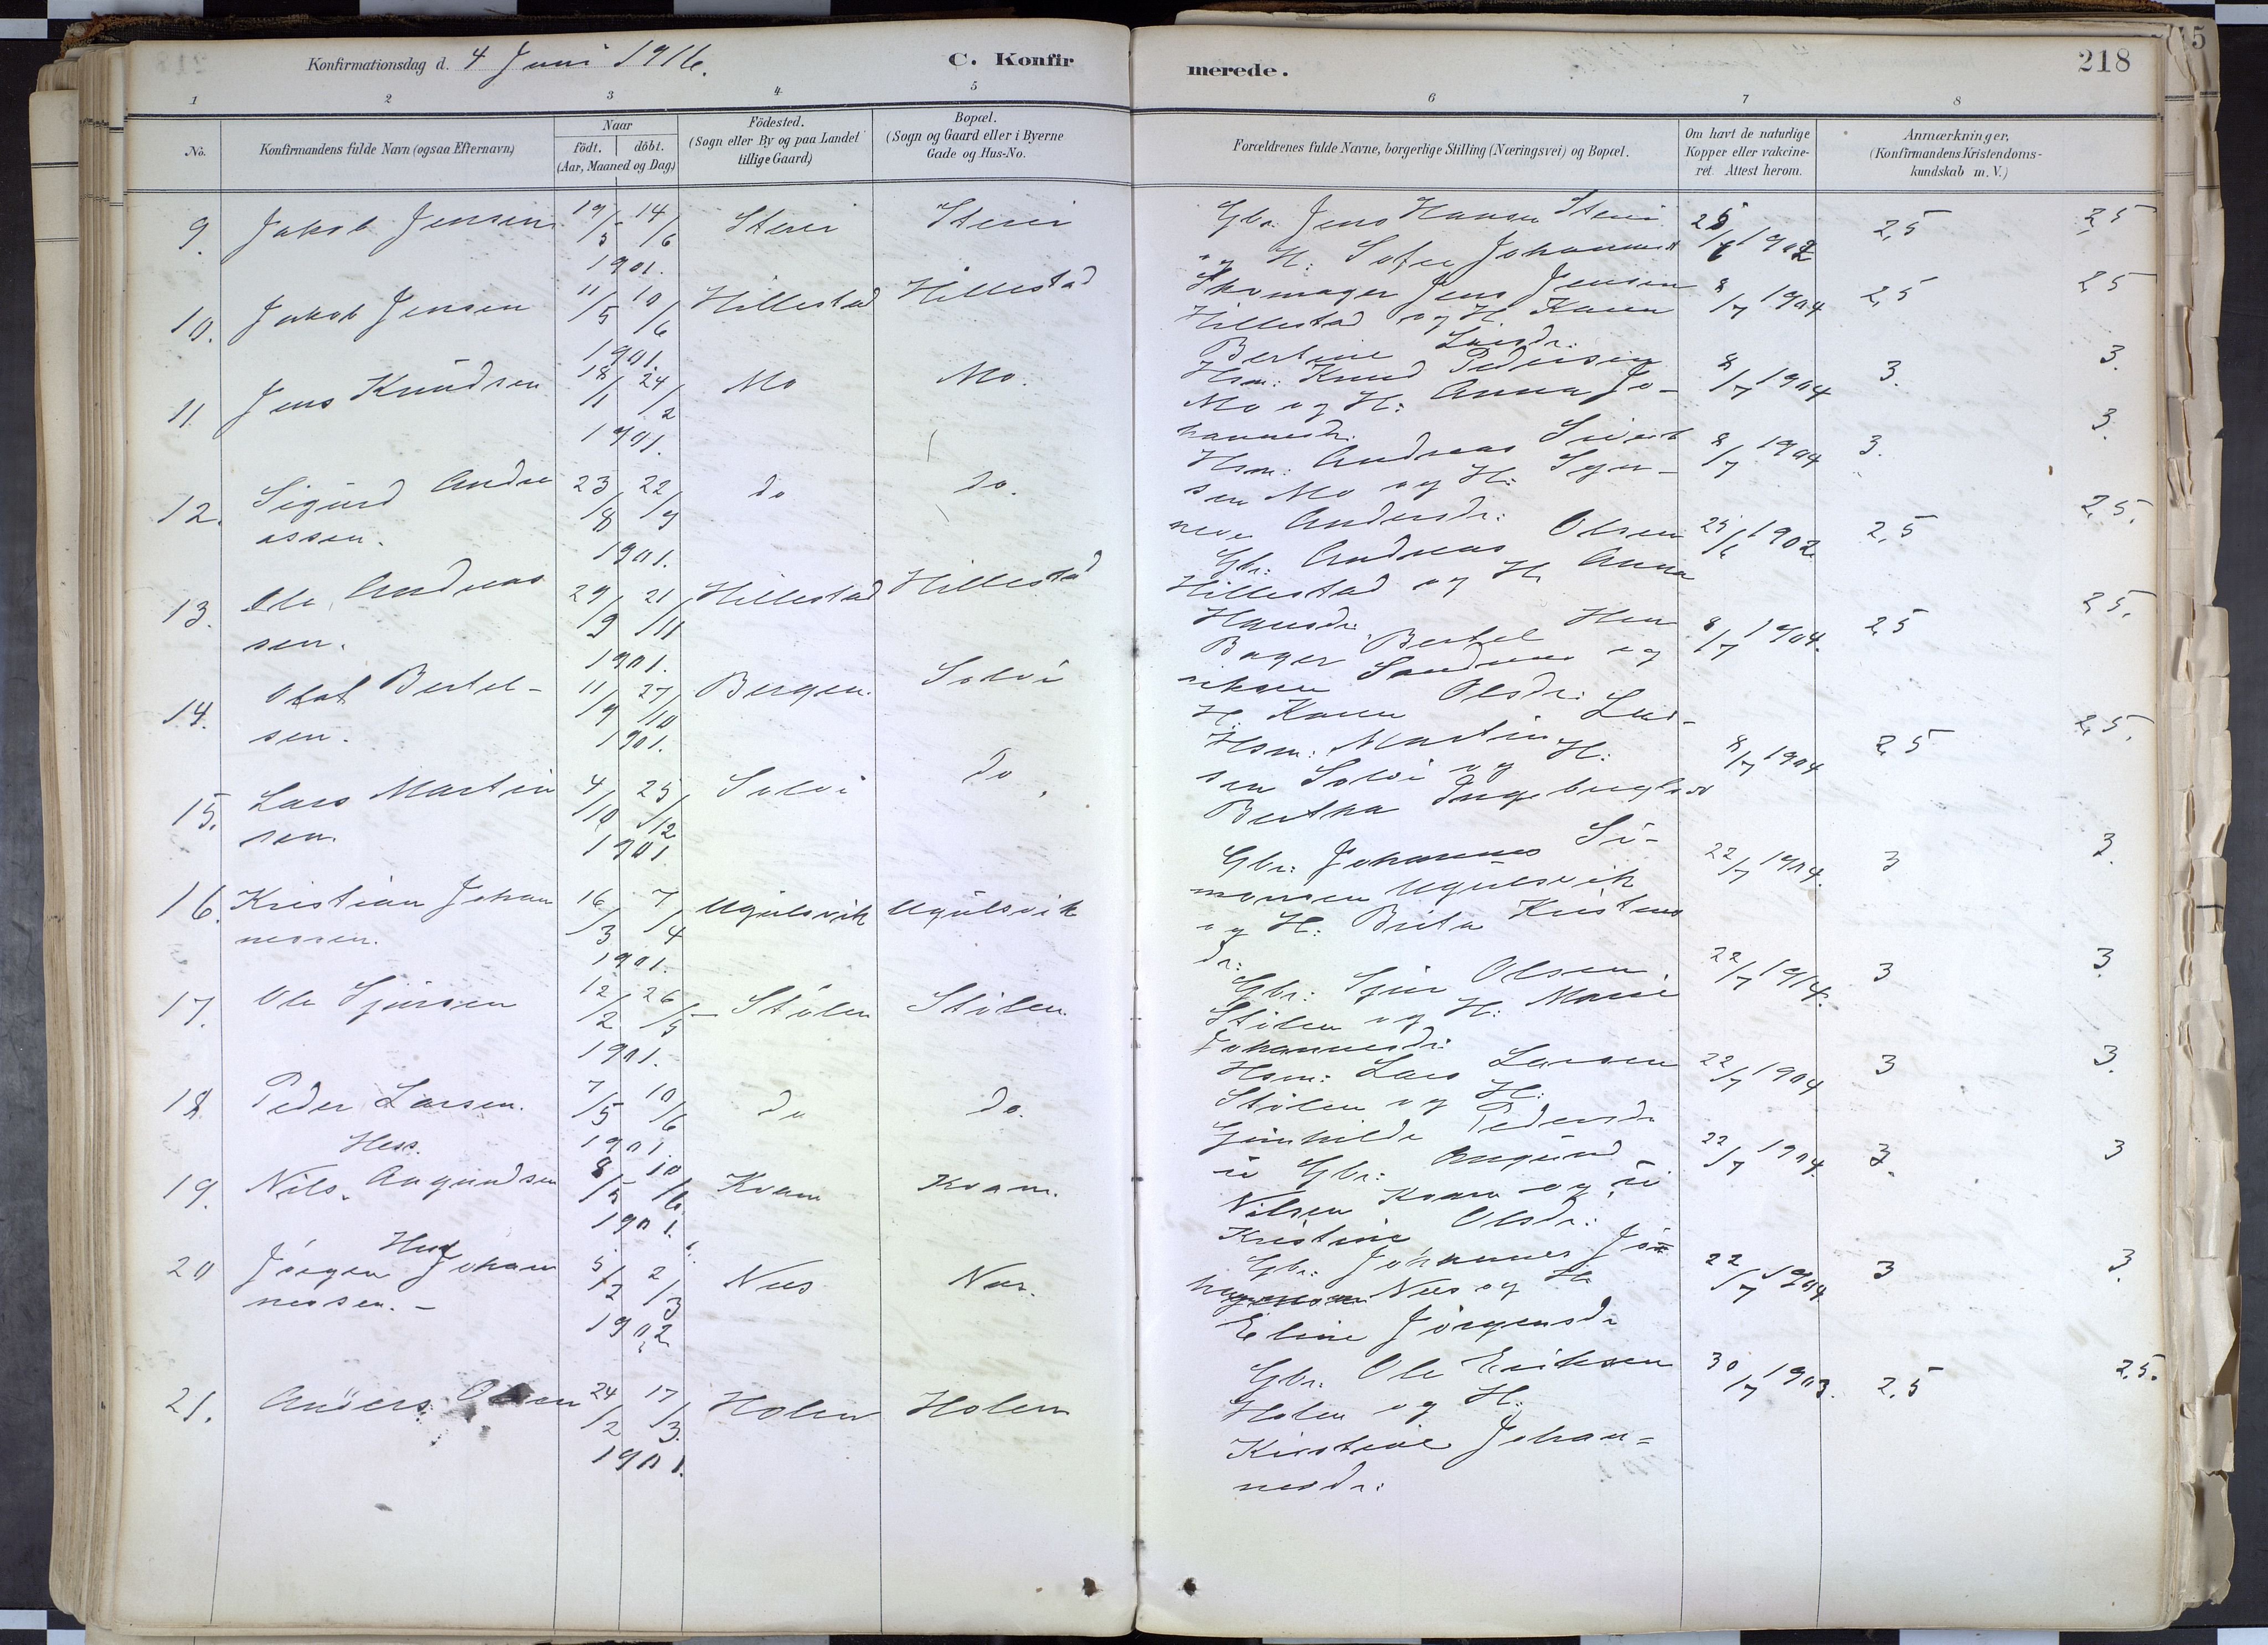 Konfirmationsdag d. 4 Juni 1916.
C. Konfirmerede.
218
1 2 3 4 5 6 7 8
No.
Konfirmandens fulde Navn (ogsaa Efternavn)
Naar
födt. döbt.
(Aar, Maaned og Dag)
Födested.
(Sogn eller By og paa Landet
tillige Gaard)
Bopæl.
(Sogn og Gaard eller i Byerne
Gade og Hus-No.
Forældrenes fulde Navne, borgerlige Stilling (Næringsvei) og Bopæl.
Om havt de naturlige
Kopper eller vakcine-
ret. Attest herom.
Anmærkninger,
(Konfirmandens Kristendoms-
kundskab m. V.)
9. Jakob Jensen 19/5 14/6 1901. Steiri Steiri
Gbr. Jens Hansen Steiri
og H. Sofie Johannesd
25/6 1902 2,5 2,5
10. Jakob Jensen 11/5 10/6 1901. Hillestad Hillestad
Skomager Jens Jensen
Hillestad og H. Karen
Bertine Larsdr.
8/7 1904 2,5 2,5
11. Jens Knudsen 18/1 24/2 1901. Mo Mo.
Hsm: Knud Pedersen
Mo og H: Anna Jo-
hannesdr.
8/7 1904 3. 3.
12. Sigurd Andre
assen. 23/8 22/9 1901. do do.
Hsm: Andreas Sivert
sen Mo og H: Syn-
neve Andersdr:
8/7 1904 3. 3.
13. Ole Andreas
sen. 29/9 21/11 1901. Hillestad Hillestad
Gbr: Andreas Olsen
Hillestad og H. Anna
Hansdr.
25/6 1902 2,5 2,5.
14. Olaf Bertel-
sen. 11/9 27/10 1901. Bergen. Solvi
Bager Bertel Hen
riksen Sandnes og
H. Karen Olsdr:
8/7 1904. 2,5 2,5.
15. Lars Martin
sen. 4/10 25/12 1901 Solvi do
Hsm: Martin Lar-
sen Solvi og H:
Bertha Ingebrigtsd
8/7 1904 2,5 2,5.
16. Kristian Johan
nessen. 16/3 7/4 1901. Ugulsvik Ugulsvik
Gbr: Johannes Si-
monsen Ugulsvik
og H. Brita Kristens
dr:
22/7 1904. 3 3.
17. Ole Sjursen 12/2 26/5 1901. Stölen Stölen.
Gbr: Sjur Olsen
Stölen og H: Marie
Johannesdr:
22/7 1914. 3 3.
18. Peder Larsen. 7/5 10/6 1901 do do.
Hsm: Lars Larsen
Stölen og H:
Gunhilde Pedersdr
22/7 1904 3 3.
19. Nils. Hess. Aagundsen 8/5 10/6 1901. Kvam Kvam.
Gbr: Augund
Nilsen Kvam og
Kristine Olsdr:
22/7 1904. 3. 3
20 Jörgen Johan
nessen. - 5/2 2/3 1902 Nes Nes.
Gbr: Johannes Jo-
Nes og H.
Eline Jörgensdr
22/7 1904 3 3.
21. Anders Olsen 24/2 17/3. 1901. Holen Holen
Gbr. Ole Eriksen
Holen og H.
Kirstine Johan=
nesdr:
30/7 1903. 2,5 2,5.